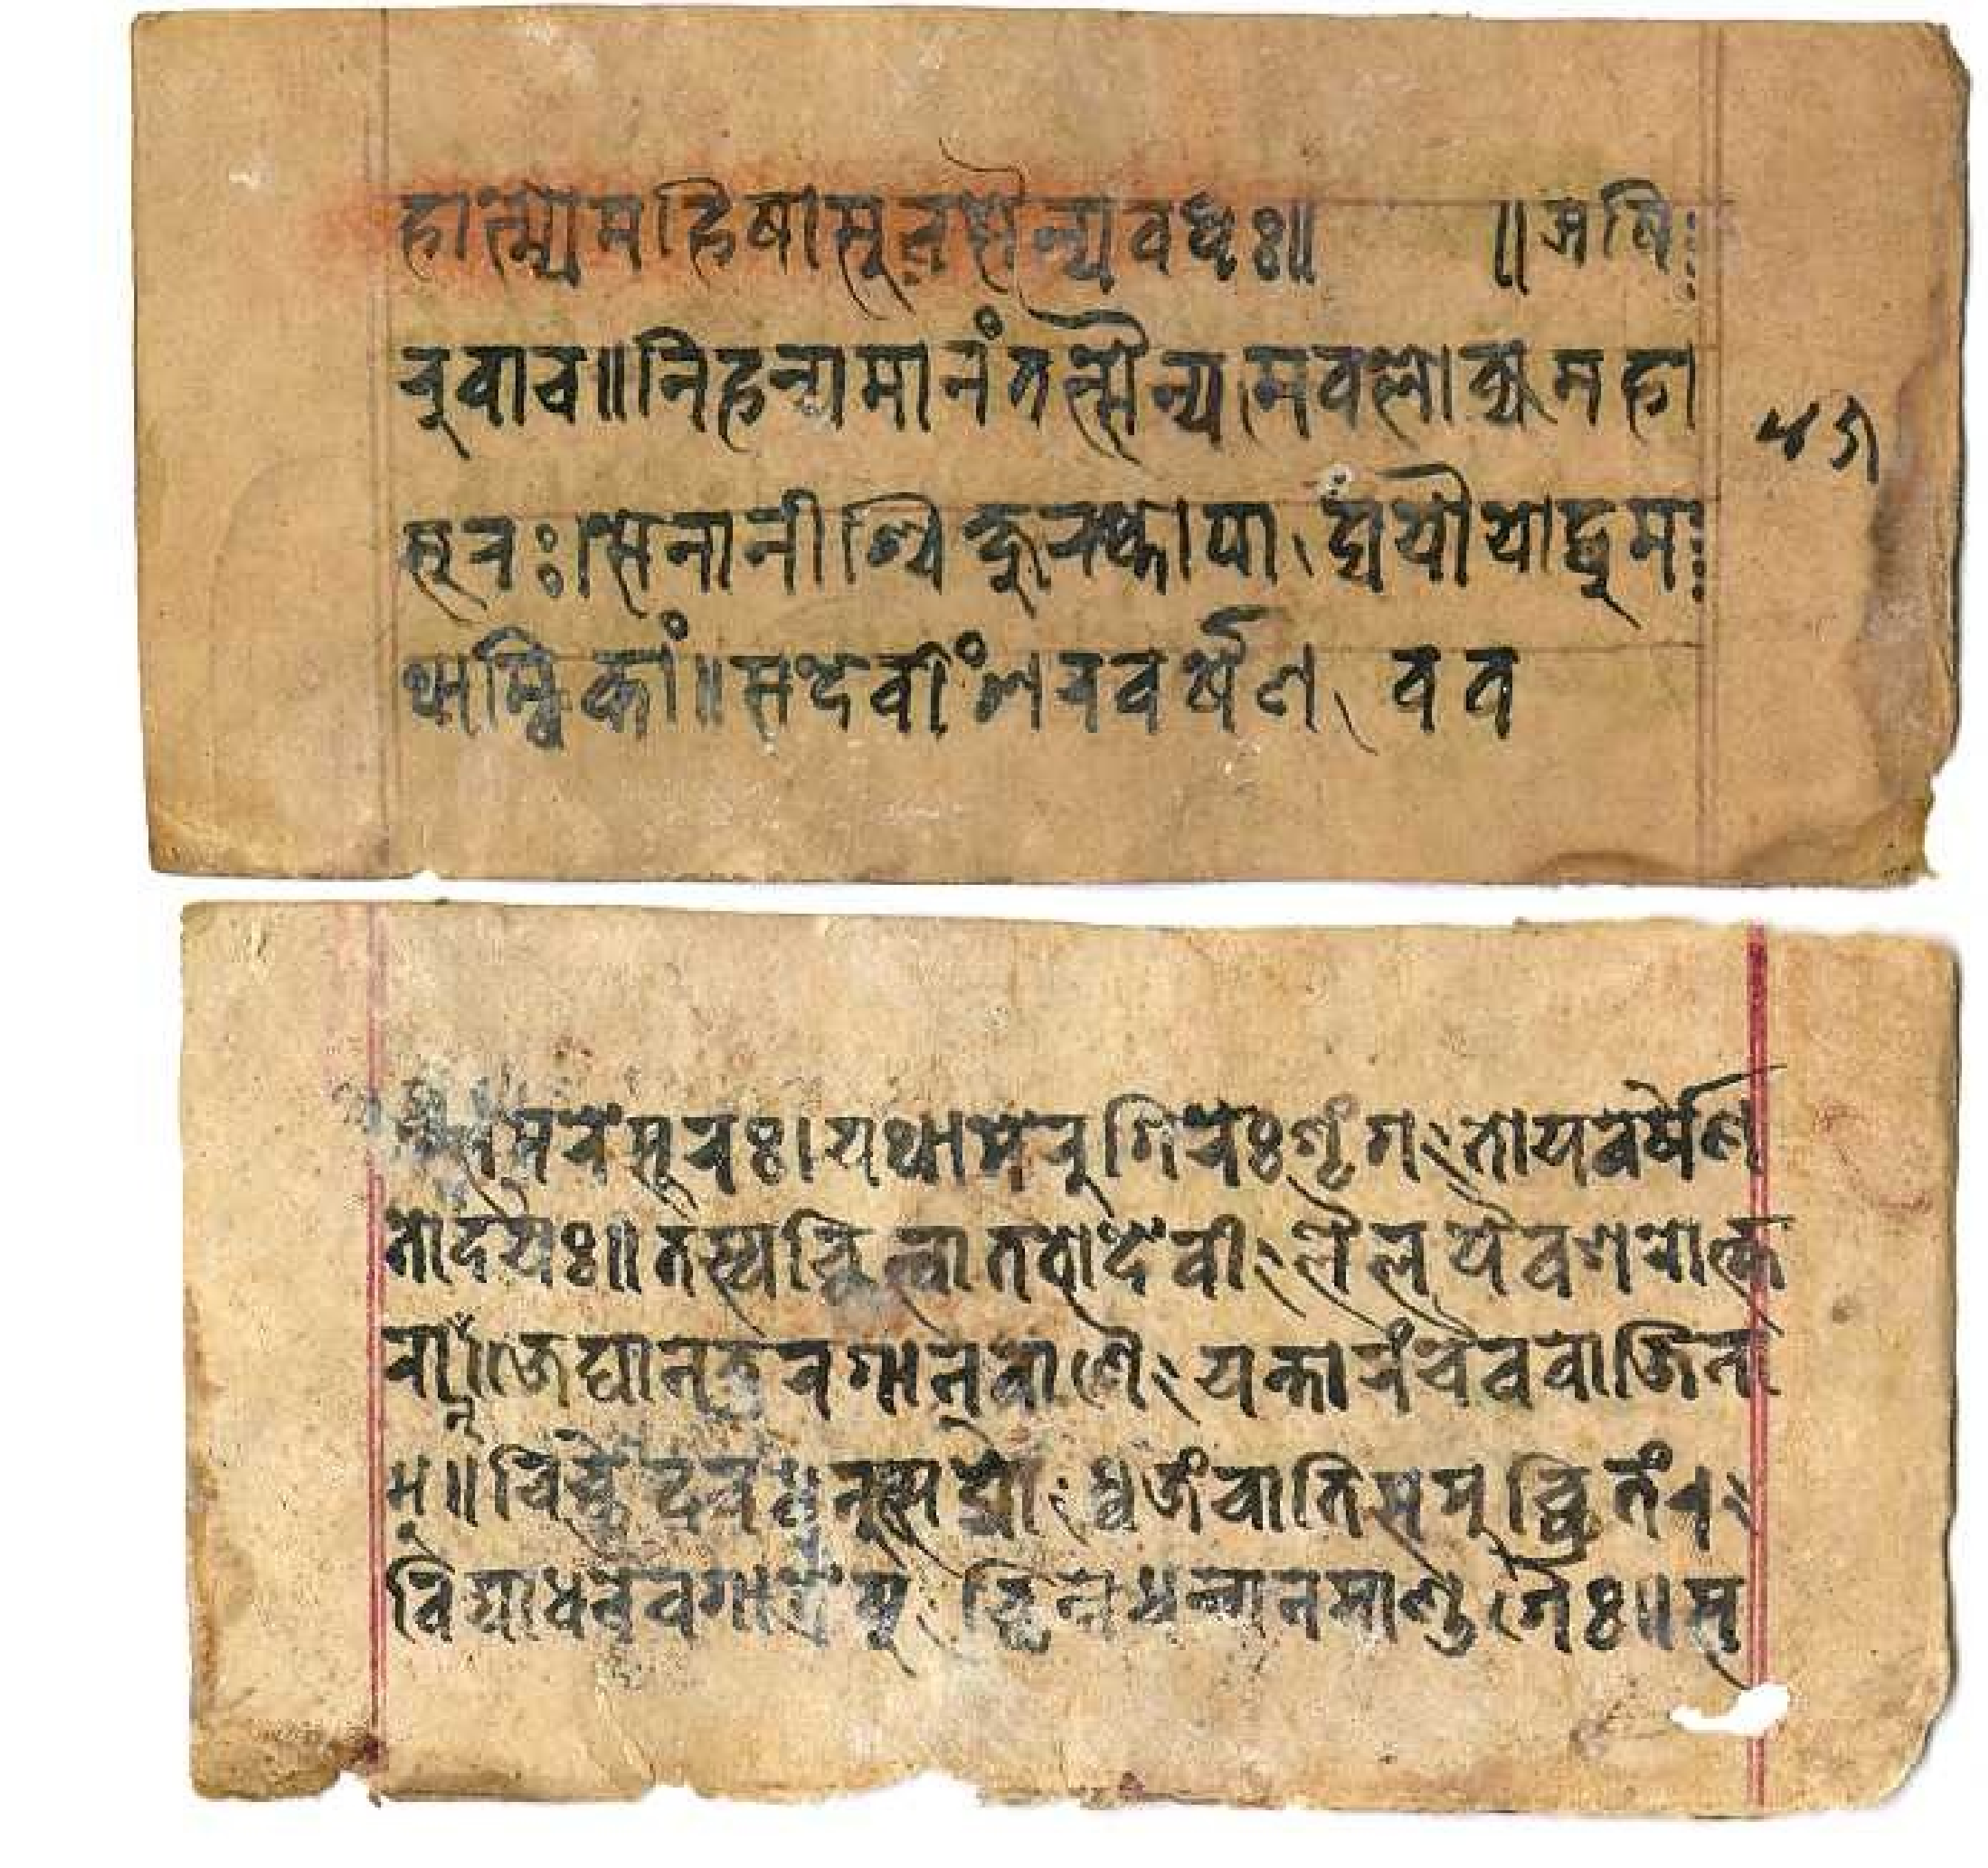 हात्म्येमहिषासूरसैन्यवधः॥ ॥ऋषि
रुवाच॥निहन्यमानंतत्सैन्यमवलोक्यमहा
सूरः।सेनानीश्चिक्षुरकोपाद्ययौयोद्धुम
थाम्बिकां॥सदेवींशरवर्षेणवव
समरेसूरः।यथामेरुगिरेःशृंगंतोयवर्षेण
तोयदः॥तस्यच्छित्वाततोदेवीलीलयैवशरोत्क
रान्॥जघानतुरगान्बाणैर्यन्तारंचैववाजिना
म्॥चिच्छेदचधनुःसद्योध्वजंचातिसमुच्छ्रितं
विव्याधचैवगात्रेषुछिन्नधन्वानमाशुगैः॥स